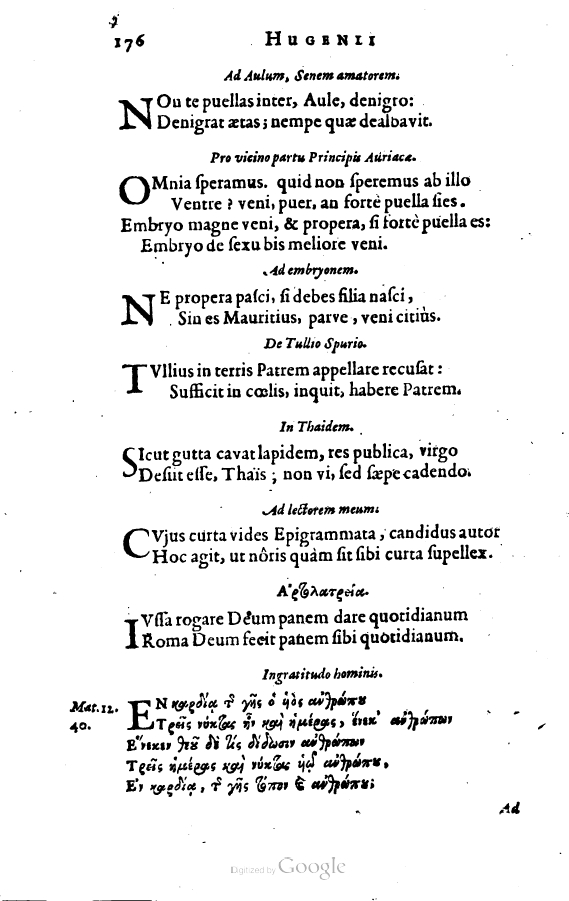 176 HUGENII
Ad Aulum, Senem amatorem.
NOn te puellas inter, Aule, denigro:
Denigrat ætas; nempe quæ dealbavit.
Pro vicino partu Principis Auriacæ.
OMnia ſperamus. quid non ſperemus ab illo
Ventre? veni, puer, an fortè puella ſies.
Embryo magne veni, & propera, ſi fortè puella es:
Embryo de ſexu bis meliore veni.
Ad embryonem.
NE propera paſci, ſi debes filia naſci,
Sin es Mauritius, parve, veni citiùs.
De Tullio Spurio.
TVllius in terris Patrem appellare recuſat:
Sufficit in cœlis, inquit, habere Patrem.
In Thaidem.
SIcut gutta cavat lapidem, res publica, virgo
Deſiit eſſe, Thaïs; non vi, ſed ſæpe cadendo.
Ad lectorem meum.
CVjus curta vides Epigrammata, candidus autor
Hoc agit, ut nôris quàm ſit ſibi curta ſupellex.
Ἀρτολατρεία.
IVſſa rogare Deum panem dare quotidianum
Roma Deum fecit panem ſibi quotidianum.
Ingratitudo hominis.
Mat. 12. ΕΝ καρδίᾳ τ͂ γῆς ὁ ἡὸς ἀνθρώπου
40. Τρεῖς νύκτας ἦν καὶ ἡμέρας, ἕνεκ' ἀνθρώπων
Ἕνεκεν θεοῦ δὲ τίς δίδωσιν ἀνθρώπων
Τρεῖς ἡμέρας καὶ νύκτας ἡῷ ἀνθρώπου,
Ἐν καρδίᾳ, τ͂ γῆς τόπον ἑ ἀνθρώπου;
Ad
Digitized by Google